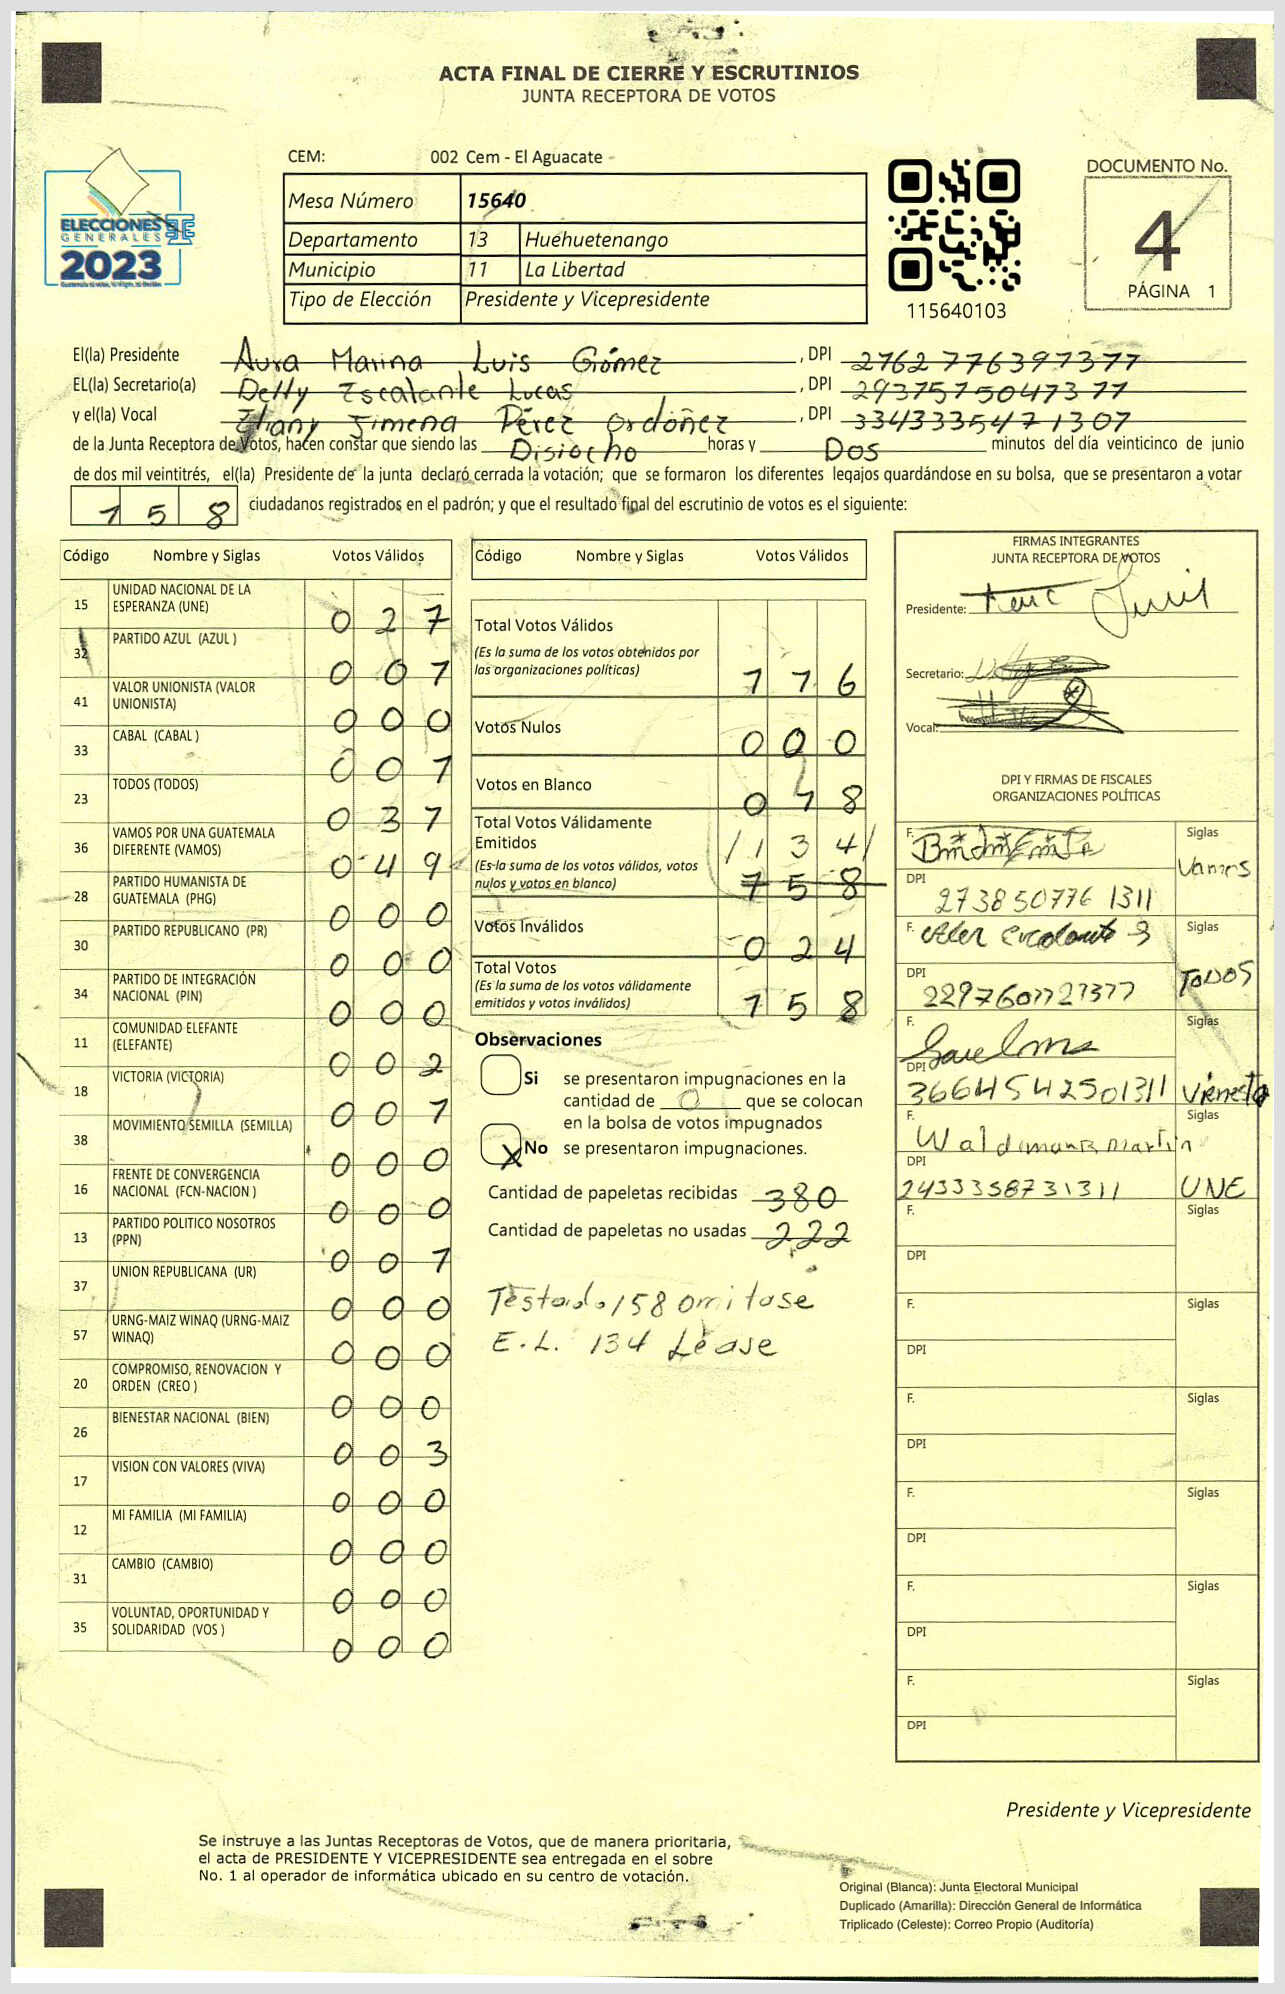 ACTA FINAL DE CIERRE Y ESCRUTINIOS
JUNTA RECEPTORA DE VOTOS
CEM: 002 Cem - El Aguacate
DOCUMENTO No.
4
PÁGINA 1
ELECCIONES
GENERALES
2023
Mesa Número 15640
Departamento 13 Huehuetenango
Municipio 11 La Libertad
Tipo de Elección Presidente y Vicepresidente
115640103
El(la) Presidente Aura Marina Luis Gómez, DPI 2762776397377
EL(la) Secretario(a) Delly Escalante Lucas, DPI 2937575047377
y el(la) Vocal Jimena Pérez Ordóñez, DPI 3343335471307
de la Junta Receptora de Votos, hacen constar que siendo las Disiocho horas y Dos minutos del día veinticinco de junio
de dos mil veintitrés, el(la) Presidente de la junta declaró cerrada la votación; que se formaron los diferentes legajos guardándose en su bolsa, que se presentaron a votar
158 ciudadanos registrados en el padrón; y que el resultado final del escrutinio de votos es el siguiente:
Código Nombre y Siglas Votos Válidos
15 UNIDAD NACIONAL DE LA ESPERANZA (UNE) 0 2 7
32 PARTIDO AZUL (AZUL ) 0 0 1
41 VALOR UNIONISTA (VALOR UNIONISTA) 0 0 0
33 CABAL (CABAL ) 0 0 1
23 TODOS (TODOS) 0 3 7
36 VAMOS POR UNA GUATEMALA DIFERENTE (VAMOS) 0 4 9
28 PARTIDO HUMANISTA DE GUATEMALA (PHG) 0 0 0
30 PARTIDO REPUBLICANO (PR) 0 0 0
34 PARTIDO DE INTEGRACIÓN NACIONAL (PIN) 0 0 0
11 COMUNIDAD ELEFANTE (ELEFANTE) 0 0 2
18 VICTORIA (VICTORIA) 0 0 1
38 MOVIMIENTO SEMILLA (SEMILLA) 0 0 0
16 FRENTE DE CONVERGENCIA NACIONAL (FCN-NACION ) 0 0 0
13 PARTIDO POLITICO NOSOTROS (PPN) 0 0 1
37 UNION REPUBLICANA (UR) 0 0 0
57 URNG-MAIZ WINAQ (URNG-MAIZ WINAQ) 0 0 0
20 COMPROMISO, RENOVACION Y ORDEN (CREO ) 0 0 0
26 BIENESTAR NACIONAL (BIEN) 0 0 3
17 VISION CON VALORES (VIVA) 0 0 0
12 MI FAMILIA (MI FAMILIA) 0 0 0
31 CAMBIO (CAMBIO) 0 0 0
35 VOLUNTAD, OPORTUNIDAD Y SOLIDARIDAD (VOS ) 0 0 0
Código Nombre y Siglas Votos Válidos
Total Votos Válidos
(Es la suma de los votos obtenidos por
las organizaciones políticas) 1 1 6
Votos Nulos 0 0 0
Votos en Blanco 0 1 8
Total Votos Válidamente
Emitidos /1 3 4/
(Es la suma de los votos válidos, votos
nulos y votos en blanco) 1 5 8
Votos Inválidos 0 2 4
Total Votos
(Es la suma de los votos válidamente
emitidos y votos inválidos) 1 5 8
Observaciones
Si se presentaron impugnaciones en la
cantidad de 0 que se colocan
en la bolsa de votos impugnados
X No se presentaron impugnaciones.
Cantidad de papeletas recibidas 380
Cantidad de papeletas no usadas 222
Testado, 158 omitase
E.L. 134 Lease
FIRMAS INTEGRANTES
JUNTA RECEPTORA DE VOTOS
Presidente:
Secretario:
Vocal:
DPI Y FIRMAS DE FISCALES
ORGANIZACIONES POLÍTICAS
F. Siglas Vamos
DPI 273850776 1311
F. Siglas TODOS
DPI
F. Siglas
DPI 3664542501311
F. Waldimar Martin Siglas UNE
DPI 2433358731311
F. Siglas
DPI
F. Siglas
DPI
F. Siglas
DPI
F. Siglas
DPI
F. Siglas
DPI
F. Siglas
DPI
Presidente y Vicepresidente
Se instruye a las Juntas Receptoras de Votos, que de manera prioritaria,
el acta de PRESIDENTE Y VICEPRESIDENTE sea entregada en el sobre
No. 1 al operador de informática ubicado en su centro de votación.
Original (Blanca): Junta Electoral Municipal
Duplicado (Amarilla): Dirección General de Informática
Triplicado (Celeste): Correo Propio (Auditoría)